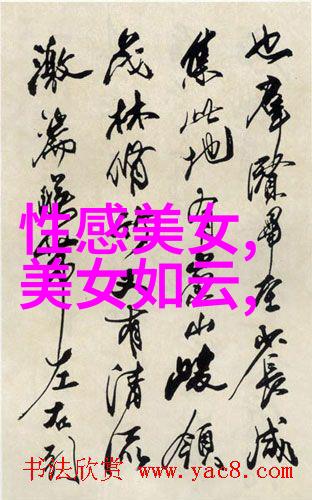 也羣賢畢至少長咸
集此地有崇山峻領
茂林脩竹又有清流
激湍暎帶左右引
性感美女,
美女如云,
书法欣赏 www.yac8.com